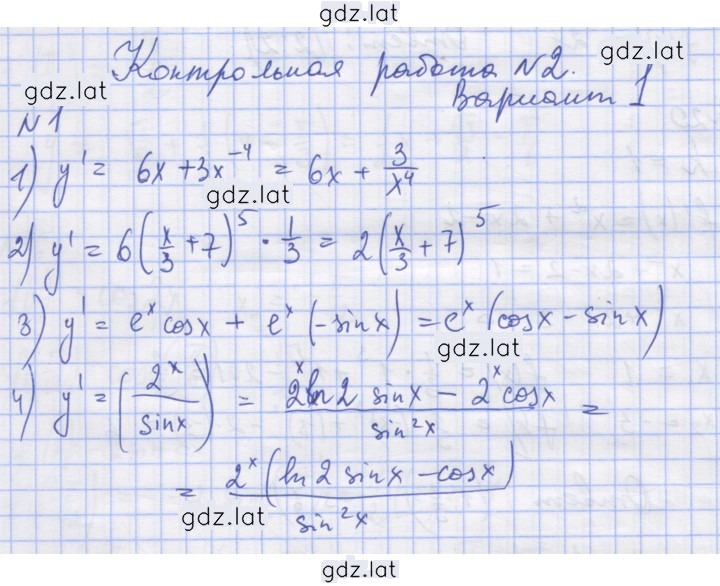 gdz.lat
Контрольная работа №2.
gdz.lat
gdz.lat
Вариант 1
№1
1) y' = 6x + 3x⁻⁴ = 6x + 3/x⁴
gdz.lat
2) y' = 6(x/3 + 7)⁵ · 1/3 = 2(x/3 + 7)⁵
3) y' = eˣ cosx + eˣ (-sinx) = eˣ (cosx - sinx)
gdz.lat
4) y' = (2ˣ/sinx)' = (2ˣ ln2 sinx - 2ˣ cosx)/sin²x =
= 2ˣ(ln2 sinx - cosx)/sin²x
gdz.lat
gdz.lat